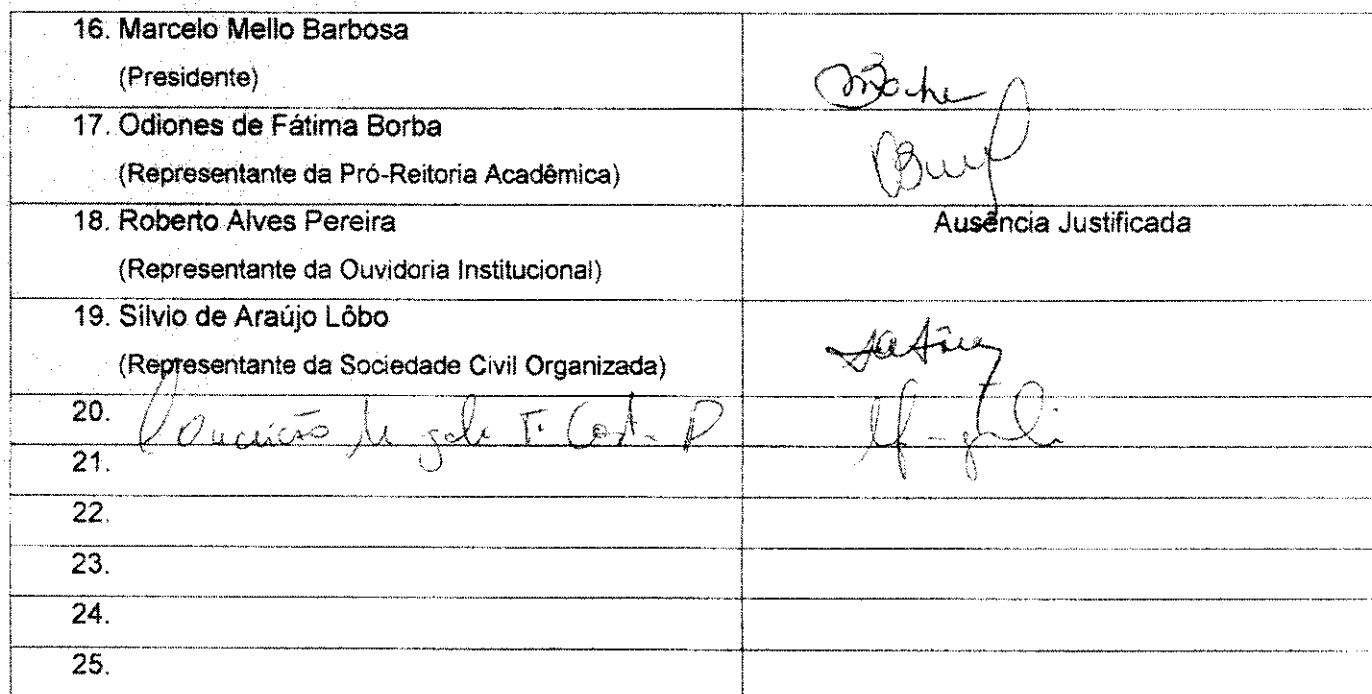 16. Marcelo Mello Barbosa
(Presidente)
17. Odiones de Fátima Borba
(Representante da Pró-Reitoria Acadêmica)
18. Roberto Alves Pereira
Ausência Justificada
(Representante da Ouvidoria Institucional)
19. Sílvio de Araújo Lôbo
(Representante da Sociedade Civil Organizada)
20.
21.
22.
23.
24.
25.